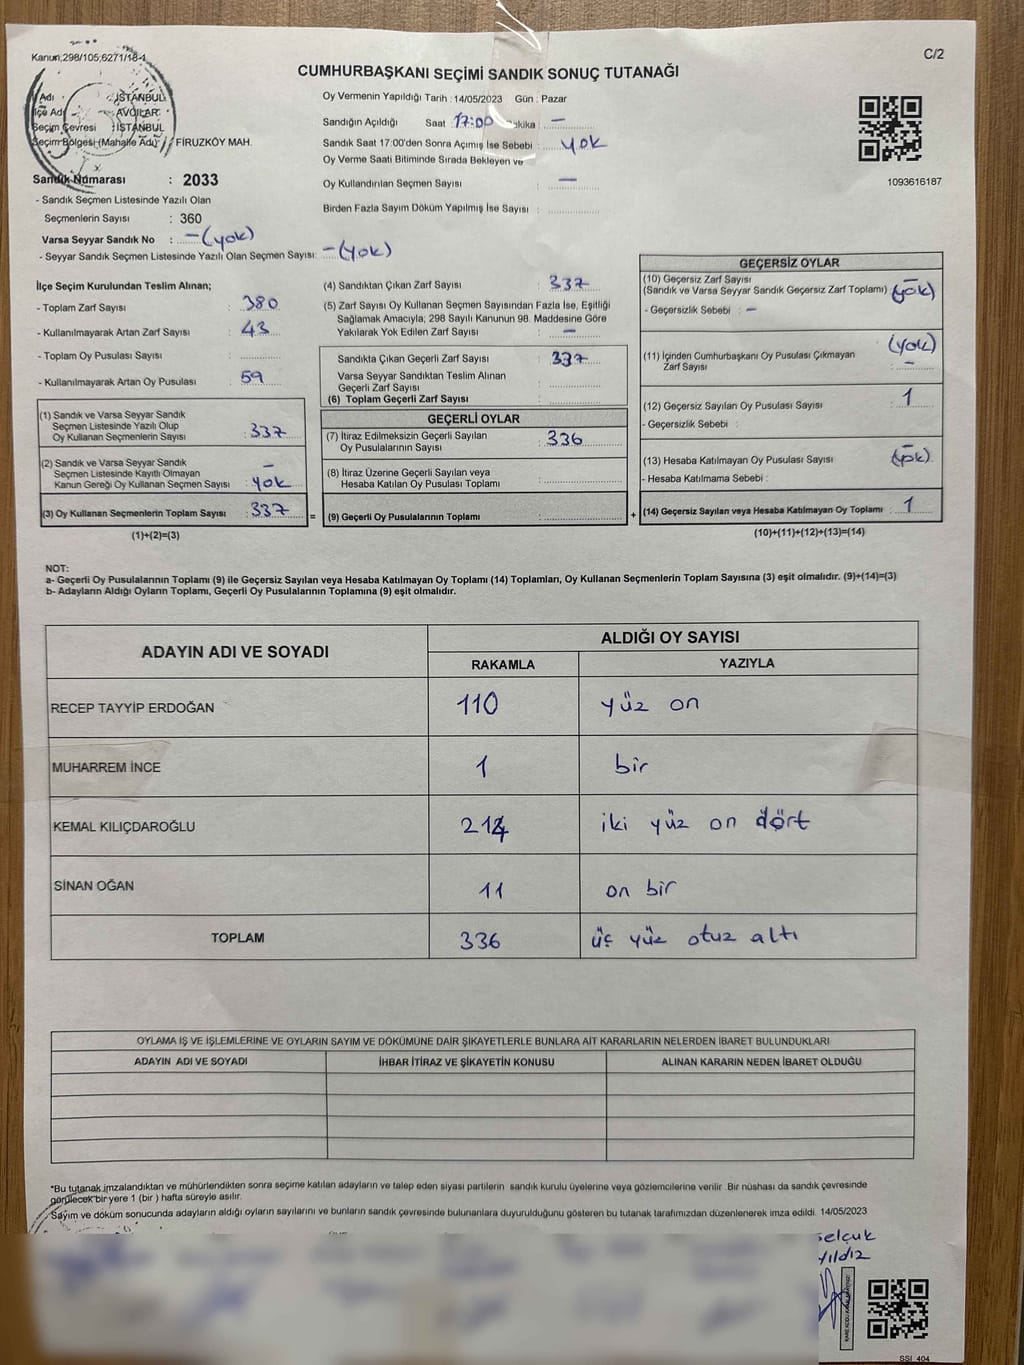 Kanun;298/105,6271/18-1
C/2
CUMHURBAŞKANI SEÇİMİ SANDIK SONUÇ TUTANAĞI
Oy Vermenin Yapıldığı Tarih : 14/05/2023 Gün : Pazar
Adı : İSTANBUL
İlçe Adı : AVCILAR
Seçim Çevresi : İSTANBUL
Seçim Bölgesi (Mahalle Adı) : FİRUZKÖY MAH.
Sandık Numarası : 2033
- Sandık Seçmen Listesinde Yazılı Olan
Seçmenlerin Sayısı : 360
Varsa Seyyar Sandık No : -(yok)
- Seyyar Sandık Seçmen Listesinde Yazılı Olan Seçmen Sayısı: -(yok)
Sandığın Açıldığı Saat 17:00 Dakika : -
Sandık Saat 17:00'den Sonra Açımış İse Sebebi : yok
Oy Verme Saati Bitiminde Sırada Bekleyen ve
Oy Kullandırılan Seçmen Sayısı : -
Birden Fazla Sayım Döküm Yapılmış İse Sayısı :
1093616187
İlçe Seçim Kurulundan Teslim Alınan;
- Toplam Zarf Sayısı : 380
- Kullanılmayarak Artan Zarf Sayısı : 43
- Toplam Oy Pusulası Sayısı :
- Kullanılmayarak Artan Oy Pusulası : 59
(1) Sandık ve Varsa Seyyar Sandık
Seçmen Listesinde Yazılı Olup
Oy Kullanan Seçmenlerin Sayısı : 337
(2) Sandık ve Varsa Seyyar Sandık
Seçmen Listesinde Kayıtlı Olmayan
Kanun Gereği Oy Kullanan Seçmen Sayısı : - yok
(3) Oy Kullanan Seçmenlerin Toplam Sayısı : 337
(1)+(2)=(3)
=
(4) Sandıktan Çıkan Zarf Sayısı : 337
(5) Zarf Sayısı Oy Kullanan Seçmen Sayısından Fazla İse, Eşitliği
Sağlamak Amacıyla; 298 Sayılı Kanunun 98. Maddesine Göre
Yakılarak Yok Edilen Zarf Sayısı : -
Sandıkta Çıkan Geçerli Zarf Sayısı : 337
Varsa Seyyar Sandıktan Teslim Alınan
Geçerli Zarf Sayısı :
(6) Toplam Geçerli Zarf Sayısı :
GEÇERLİ OYLAR
(7) İtiraz Edilmeksizin Geçerli Sayılan
Oy Pusulalarının Sayısı : 336
(8) İtiraz Üzerine Geçerli Sayılan veya
Hesaba Katılan Oy Pusulası Toplamı :
(9) Geçerli Oy Pusulalarının Toplamı :
+
GEÇERSİZ OYLAR
(10) Geçersiz Zarf Sayısı
(Sandık ve Varsa Seyyar Sandık Geçersiz Zarf Toplamı) : - (yok)
- Geçersizlik Sebebi : -
(11) İçinden Cumhurbaşkanı Oy Pusulası Çıkmayan
Zarf Sayısı : (yok) -
(12) Geçersiz Sayılan Oy Pusulası Sayısı : 1
- Geçersizlik Sebebi :
(13) Hesaba Katılmayan Oy Pusulası Sayısı : - (yok)
- Hesaba Katılmama Sebebi :
(14) Geçersiz Sayılan veya Hesaba Katılmayan Oy Toplamı : 1
(10)+(11)+(12)+(13)=(14)
NOT:
a- Geçerli Oy Pusulalarının Toplamı (9) ile Geçersiz Sayılan veya Hesaba Katılmayan Oy Toplamı (14) Toplamları, Oy Kullanan Seçmenlerin Toplam Sayısına (3) eşit olmalıdır. (9)+(14)=(3)
b- Adayların Aldığı Oyların Toplamı, Geçerli Oy Pusulalarının Toplamına (9) eşit olmalıdır.
ADAYIN ADI VE SOYADI
ALDIĞI OY SAYISI
RAKAMLA YAZIYLA
RECEP TAYYİP ERDOĞAN 110 yüz on
MUHARREM İNCE 1 bir
KEMAL KILIÇDAROĞLU 214 iki yüz on dört
SİNAN OĞAN 11 on bir
TOPLAM 336 üç yüz otuz altı
OYLAMA İŞ VE İŞLEMLERİNE VE OYLARIN SAYIM VE DÖKÜMÜNE DAİR ŞİKAYETLERLE BUNLARA AİT KARARLARIN NELERDEN İBARET BULUNDUKLARI
ADAYIN ADI VE SOYADI İHBAR İTİRAZ VE ŞİKAYETİN KONUSU ALINAN KARARIN NEDEN İBARET OLDUĞU
*Bu tutanak imzalandıktan ve mühürlendikten sonra seçime katılan adayların ve talep eden siyasi partilerin sandık kurulu üyelerine veya gözlemcilerine verilir. Bir nüshası da sandık çevresinde
görülecek bir yere 1 (bir ) hafta süreyle asılır.
Sayım ve döküm sonucunda adayların aldığı oyların sayılarını ve bunların sandık çevresinde bulunanlara duyurulduğunu gösteren bu tutanak tarafımızdan düzenlenerek imza edildi. 14/05/2023
selçuk
yıldız
SSI_404